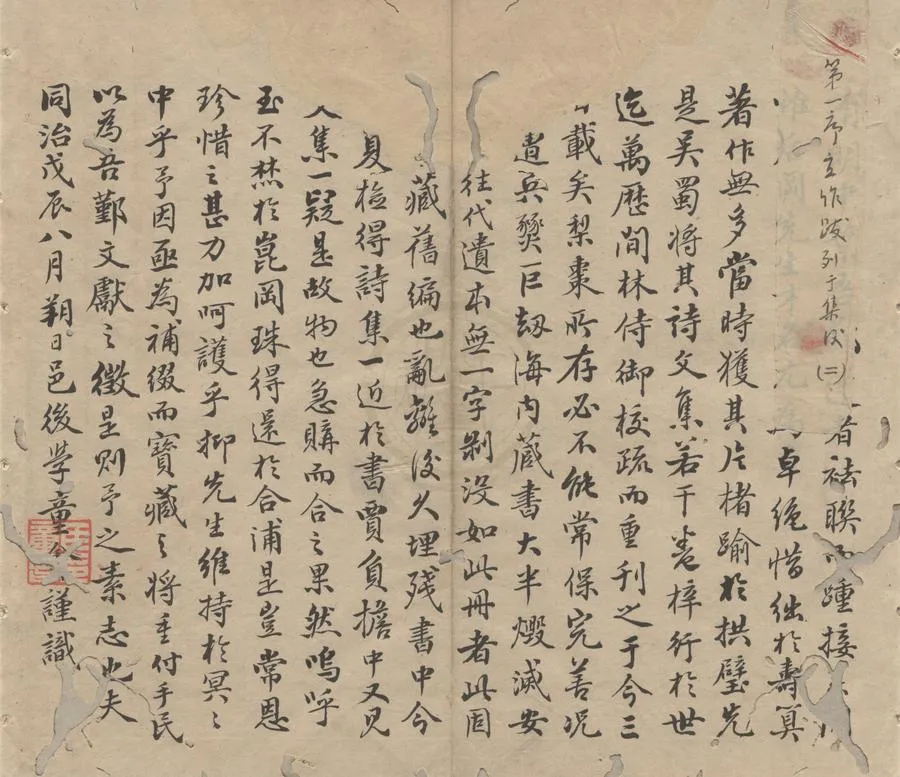 第一序立作跋列于集後(二)
者袪聯而踵接
卓絶惜绌於壽算
著作無多當時獲其片楮踰於拱璧先
是吴蜀將其詩文集若干卷梓行於世
迄萬歷間林侍御校疏而重刊之于今三
載矣梨棗所存必不能常保完善况
遭兵燹一巨劫海内藏書大半燬滅安
往代遺本無一字剝没如此冊者此固
藏舊編也亂離後久埋残書中今
夏檢得詩集一近於書賈負擔中又見
文集一疑是故物也急購而合之果然嗚呼
玉不焚於崑岡珠得還於合浦是豈常恩
珍惜之甚力加呵護乎抑先生維持於冥〻
中乎予因亟為補綴而寶藏之將重付手民
以為吾鄞文獻之徵是則予之素志也夫
同治戊辰八月朔日邑後學童謹識